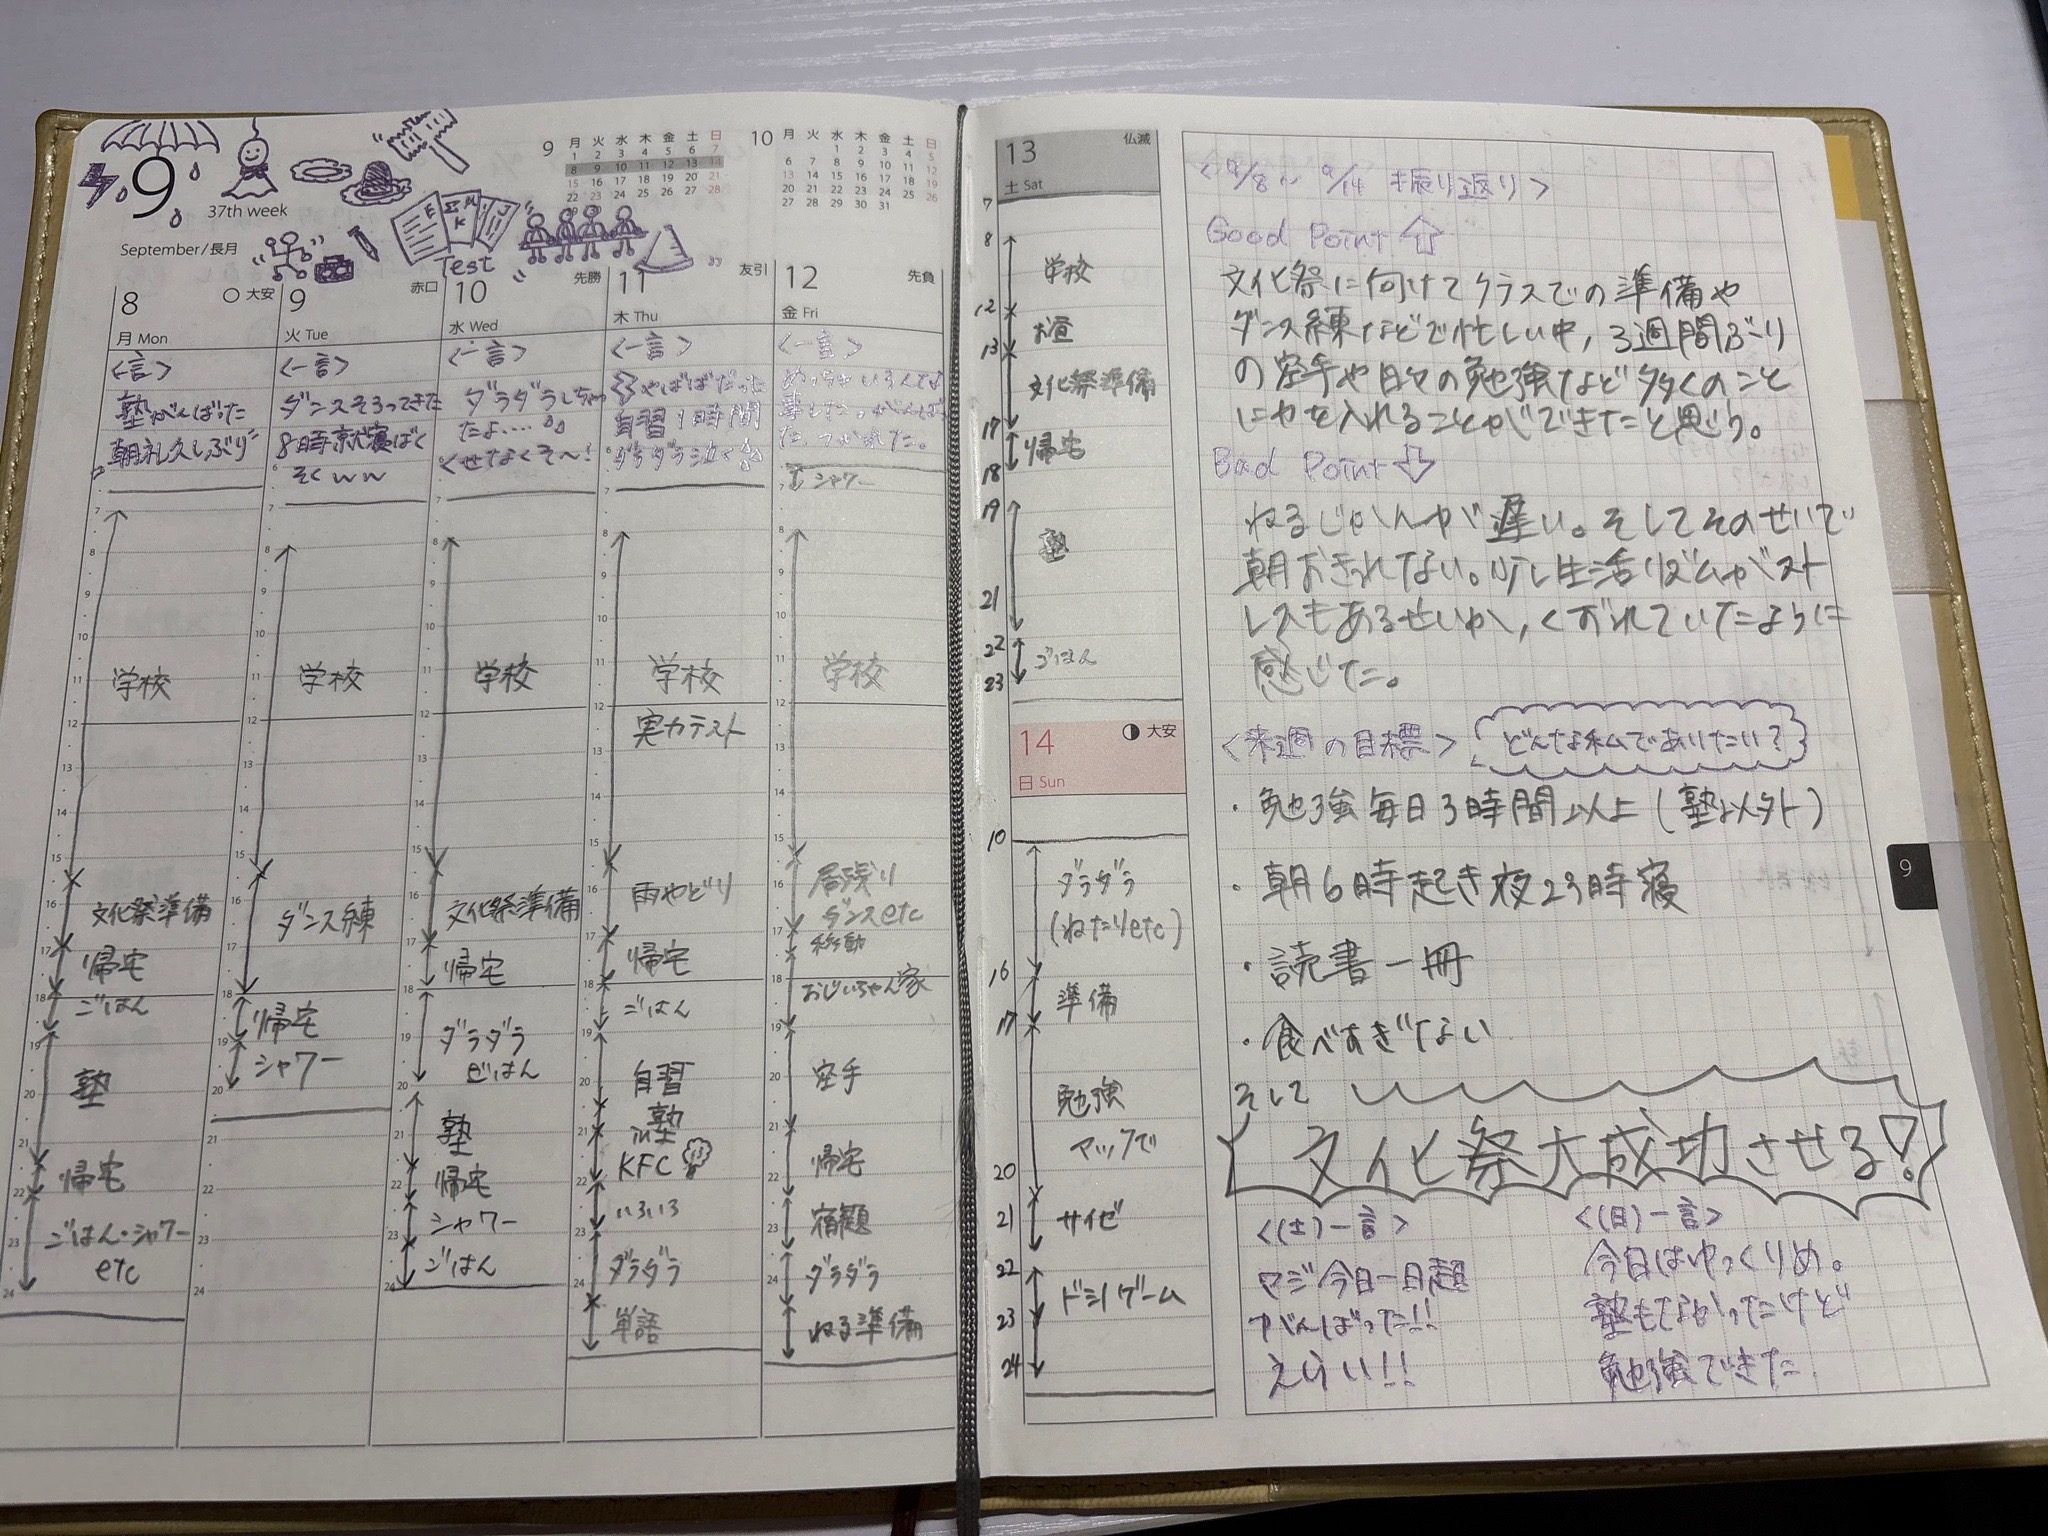 9
37th week
September/長月
Test
9 月 火 水 木 金 土 日
1 2 3 4 5 6 7
8 9 10 11 12 13 14
15 16 17 18 19 20 21
22 23 24 25 26 27 28
29 30
10 月 火 水 木 金 土 日
1 2 3 4 5
6 7 8 9 10 11 12
13 14 15 16 17 18 19
20 21 22 23 24 25 26
27 28 29 30 31
8 大安
月 Mon
<一言>
塾がんばった
朝礼久しぶり
7
8
9
10
11
学校
12
13
14
15
16
文化祭準備
17
帰宅
18
ごはん
19
20
塾
21
22
帰宅
23
ごはん・シャワー
etc
24
9 赤口
火 Tue
<一言>
ダンスそろってきた
8時就寝ばく
そくww
7
8
9
10
11
学校
12
13
14
15
16
ダンス練
17
18
帰宅
19
シャワー
20
21
22
23
24
10 先勝
水 Wed
<一言>
ダラダラしちゃっ
たよ....
くせなくそ〜!
7
8
9
10
11
学校
12
13
14
15
16
文化祭準備
17
帰宅
18
19
ダラダラ
ごはん
20
21
塾
22
帰宅
シャワー
23
ごはん
24
11 友引
木 Thu
<一言>
やばばだった
自習1時間
ダラダラ泣く
7
8
9
10
11
学校
12
実力テスト
13
14
15
16
雨やどり
17
帰宅
18
ごはん
19
20
自習
in塾
21
KFC
22
いろいろ
23
ダラダラ
24
単語
12 先負
金 Fri
<一言>
めっちゃいろんな
事した。がんばっ
た つかれた。
7
シャワー
8
9
10
11
学校
12
13
14
15
16
居残り
ダンスetc
17
移動
18
おじいちゃん家
19
20
空手
21
22
帰宅
23
宿題
24
ダラダラ
ねる準備
13 仏滅
土 Sat
7
8
学校
12
お昼
13
文化祭準備
17
帰宅
18
19
塾
21
22
ごはん
23
14 大安
日 Sun
10
ダラダラ
(ねたりetc)
16
準備
17
勉強
マックで
20
21
サイゼ
22
ドシ!ゲーム
23
24
<9/8〜9/14 振り返り>
Good Point
文化祭に向けてクラスでの準備や
ダンス練などで忙しい中,3週間ぶり
の空手や日々の勉強など多くのこと
に力を入れることができたと思う。
Bad Point
ねるじかんが遅い。そしてそのせいで
朝おきれない。少し生活リズムがスト
レスもあるせいか,くずれていたように
感じた。
<来週の目標> どんな私でありたい?
・勉強毎日3時間以上(塾以外)
・朝6時起き夜23時寝
・読書一冊
・食べすぎない
そして
文化祭大成功させる!
<(土)一言>
マジ今日一日超
がんばった!!
えらい!!
<(日)一言>
今日はゆっくりめ。
塾もなかったけど
勉強できた
9